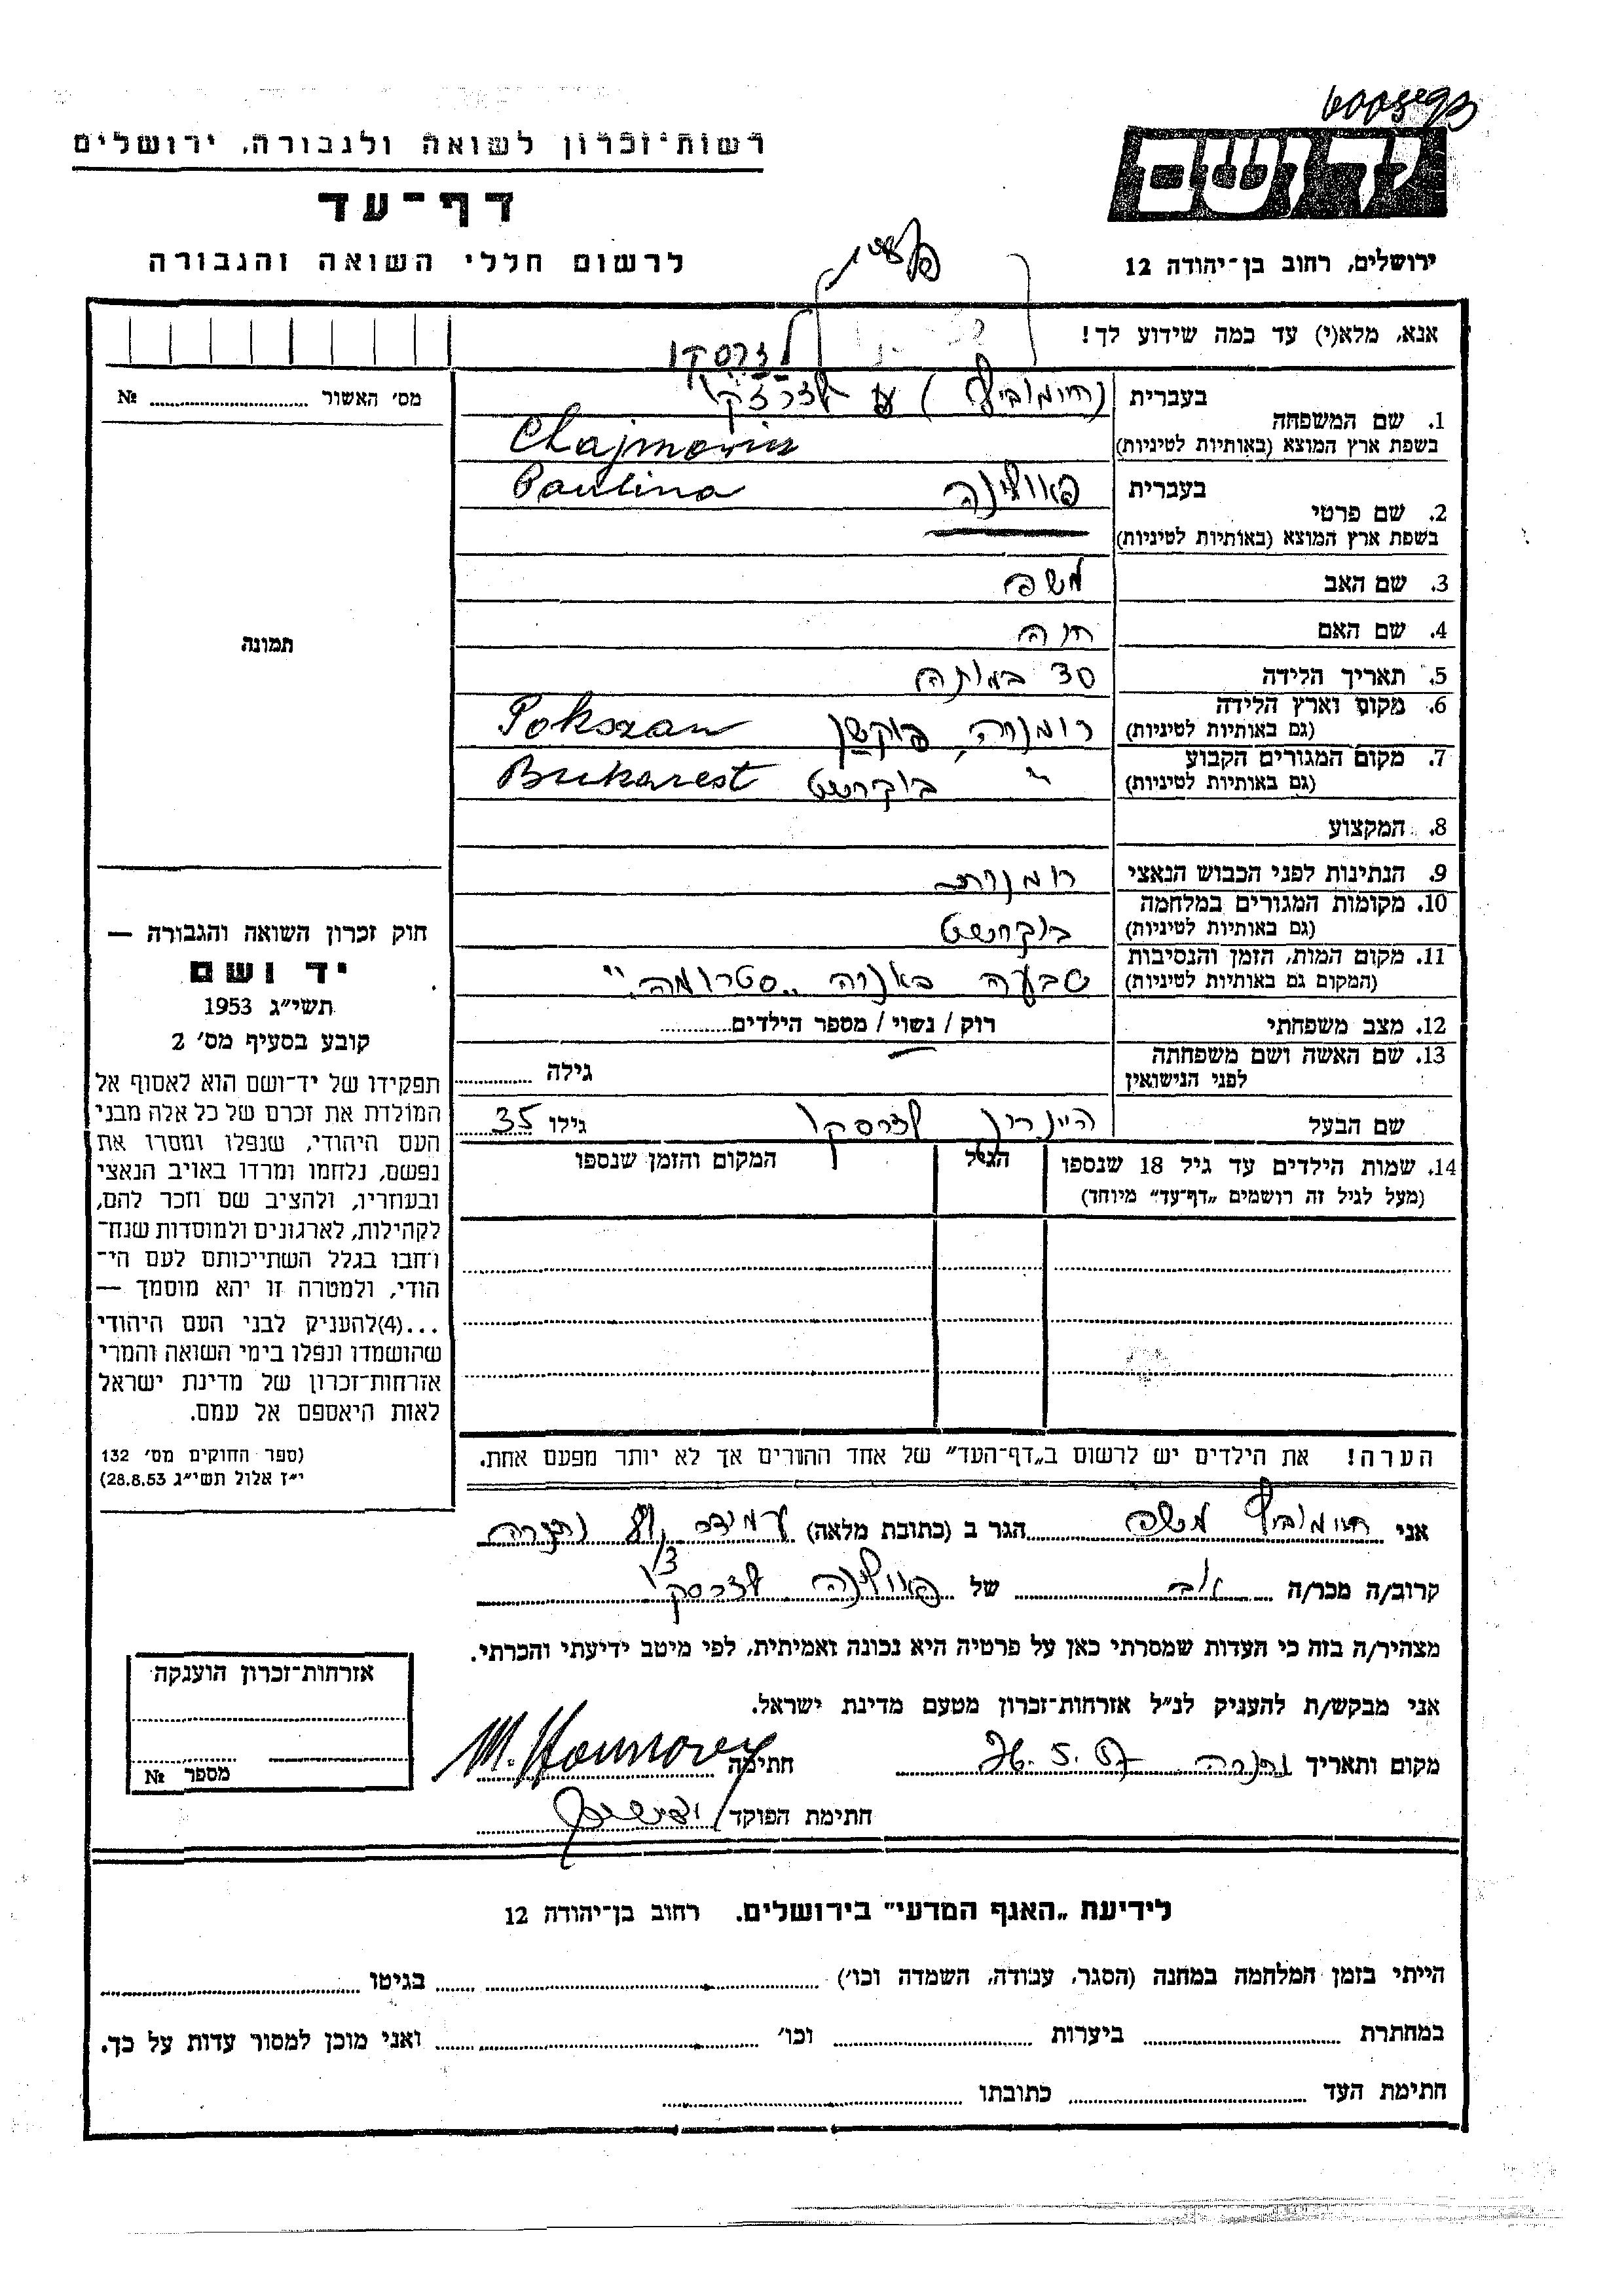 רשות־זכרון לשואה ולגבורה, ירושלים
דף־עד
לרשום חללי השואה והגבורה
ירושלים, רחוב בן־יהודה 12
אנא, מלא(י) עד כמה שידוע לך!
מס׳ האשור № ..........
תמונה
1. שם המשפחה
בעברית
(חיימוביץ)
בשפת ארץ המוצא (באותיות לטיניות)
Chajmovici
2. שם פרטי
בעברית
פאולינה Paulina
בשפת ארץ המוצא (באותיות לטיניות)
3. שם האב משה
4. שם האם חנה
5. תאריך הלידה 30 במותה
6. מקום וארץ הלידה
(גם באותיות לטיניות) רומניה, פוקשן Pokszan
7. מקום המגורים הקבוע
(גם באותיות לטיניות) " בוקרשט Bukarest
8. המקצוע
9. הנתינות לפני הכבוש הנאצי רומנית
10. מקומות המגורים במלחמה
(גם באותיות לטיניות) בוקרשט
11. מקום המות, הזמן והנסיבות
(המקום גם באותיות לטיניות) טבעה באניה "סטרומה"
12. מצב משפחתי רווק / נשוי / מספר הילדים..........
13. שם האשה ושם משפחתה
לפני הנישואין גילה ..........
שם הבעל היינריך לזרסקו גילו 35
14. שמות הילדים עד גיל 18 שנספו הגיל המקום והזמן שנספו
(מעל לגיל זה רושמים „דף־עד” מיוחד)
חוק זכרון השואה והגבורה —
יד ושם
תשי״ג 1953
קובע בסעיף מס׳ 2
תפקידו של יד־ושם הוא לאסוף אל
המולדת את זכרם של כל אלה מבני
העם היהודי, שנפלו ומסרו את
נפשם, נלחמו ומרדו באויב הנאצי
ובעוזריו, ולהציב שם וזכר להם,
לקהילות, לארגונים ולמוסדות שנח־
רחבו בגלל השתייכותם לעם הי־
הודי, ולמטרה זו יהא מוסמך —
...(4) להעניק לבני העם היהודי
שהושמדו ונפלו בימי השואה והמרי
אזרחות־זכרון של מדינת ישראל
לאות היאספם אל עמם.
(ספר החוקים מס׳ 132
י״ז אלול תשי״ג 28.8.53)
הערה! את הילדים יש לרשום ב„דף־העד” של אחד ההורים אך לא יותר מפעם אחת.
אני חיימוביץ משה הגר ב (כתובת מלאה) נהריה
קרוב/ה מכר/ה אב של פאולינה לזרסקו
מצהיר/ה בזה כי העדות שמסרתי כאן על פרטיה היא נכונה ואמיתית, לפי מיטב ידיעתי והכרתי.
אני מבקש/ת להעניק לנ״ל אזרחות־זכרון מטעם מדינת ישראל.
מקום ותאריך נהריה 26.5.57 חתימה
חתימת הפוקד
אזרחות־זכרון הוענקה
מספר №
לידיעת „האגף המדעי” בירושלים. רחוב בן־יהודה 12
הייתי בזמן המלחמה במחנה (הסגר, עבודה, השמדה וכו׳) .......... בגיטו ..........
במחתרת .......... ביערות .......... וכו׳ .......... ואני מוכן למסור עדות על כך.
חתימת העד .......... כתובתו ..........